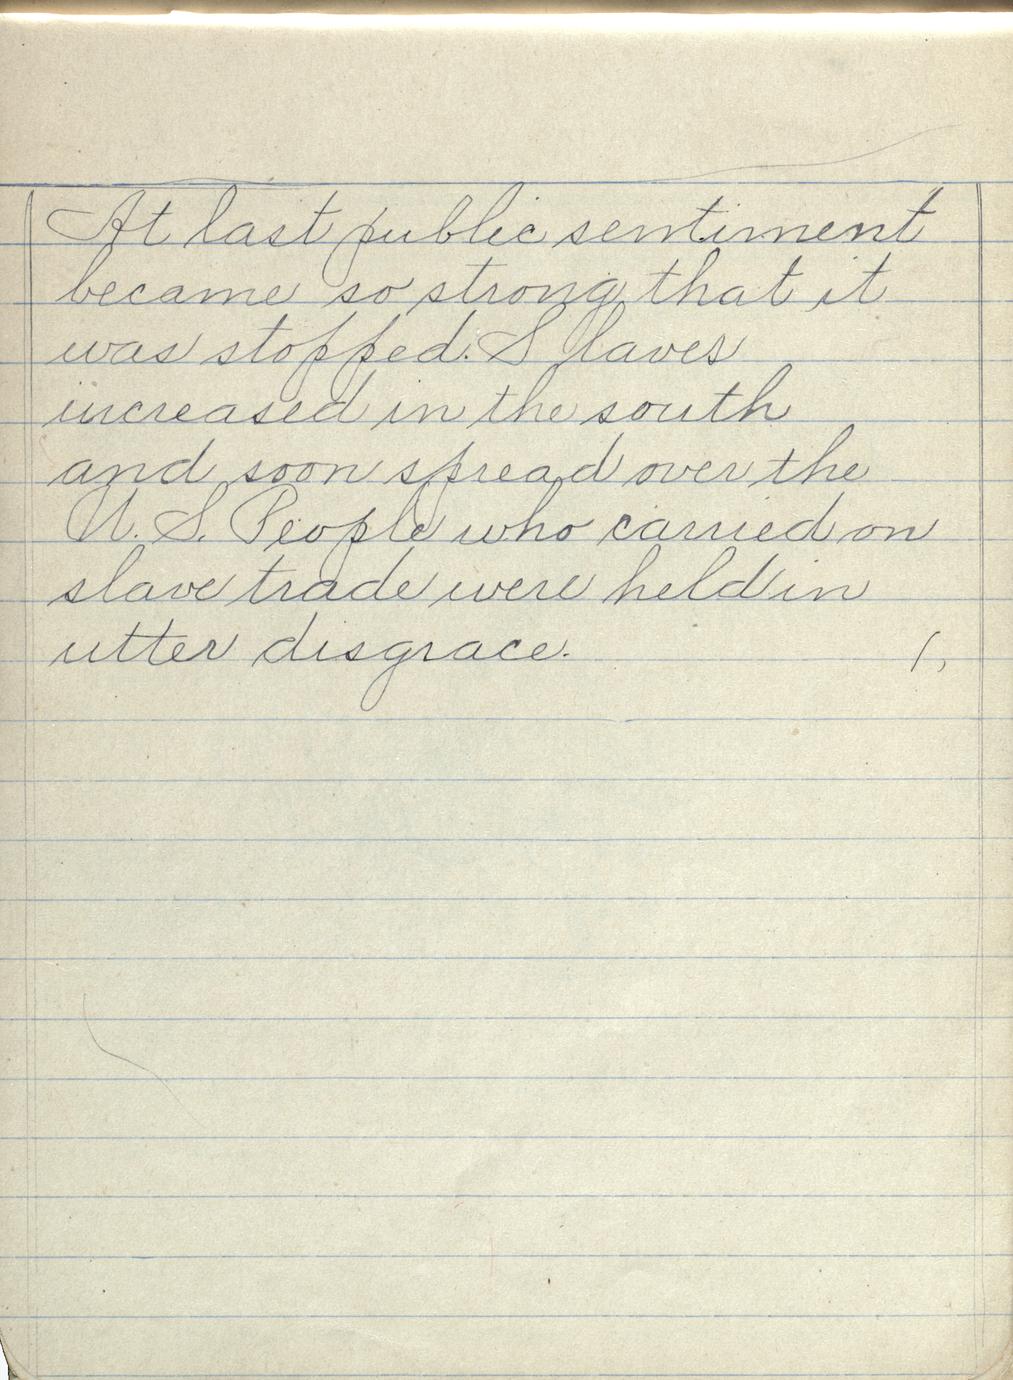 At last public sentiment
became so strong that it
was stopped. Slaves
increased in the south
and soon spread over the
U. S. People who carried on
slave trade were held in
utter disgrace.